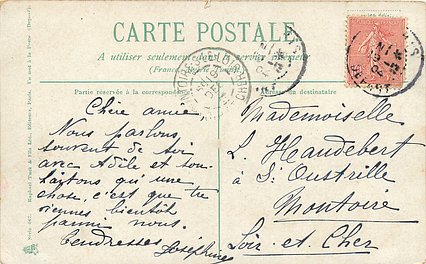 CARTE POSTALE
A utiliser seulement dans le service intérieur
Partie réservée à la correspondance
Adresse du destinataire
Chère amie
Nous parlons
souvent de toi
avec Adèle et son
qu'une
chose, c'est que tu
viennes bientôt
parmi nous.
Tendresses
Joséphine
Mademoiselle
L. Haudebert
à St Oustrille
Montoire
Loir-et-Cher